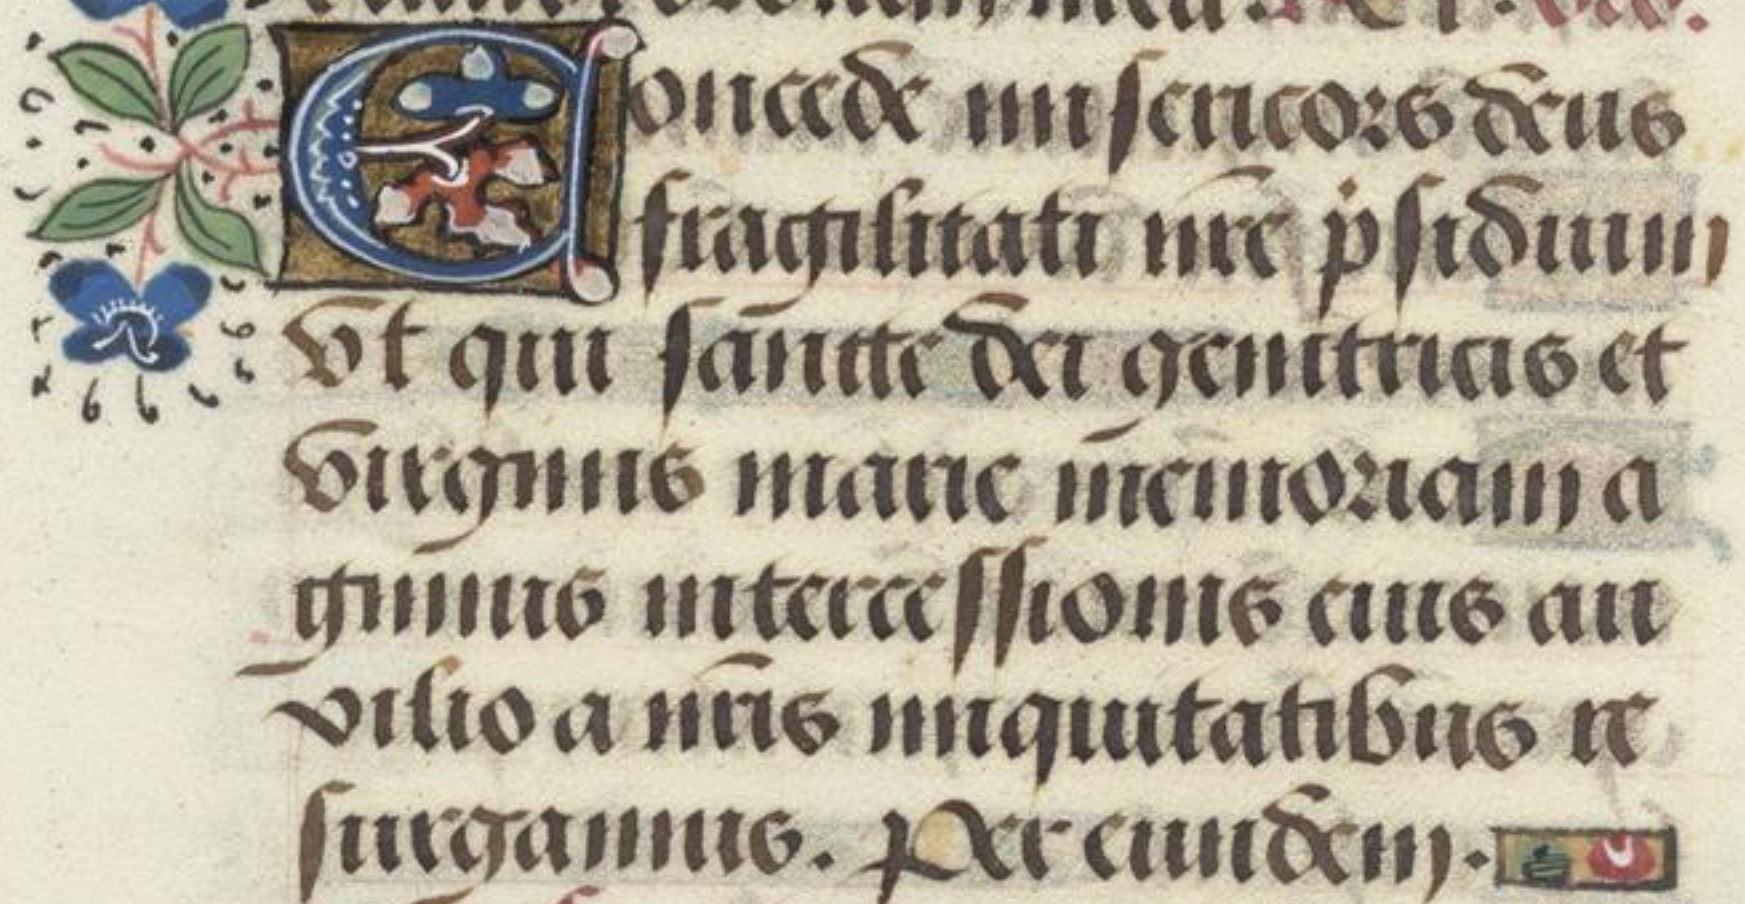 Concede misericors deus
fragilitati nr̄e p̄sidium
Vt qui sancte dei genitricis et
virginis marie memoriam a
gimus intercessionis eius au
xilio a nr̄is iniquitatibus re
surgamus. Per eundem.